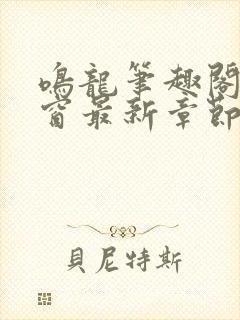 鳴龍筆趣閣
窗最新章節
貝尼特斯